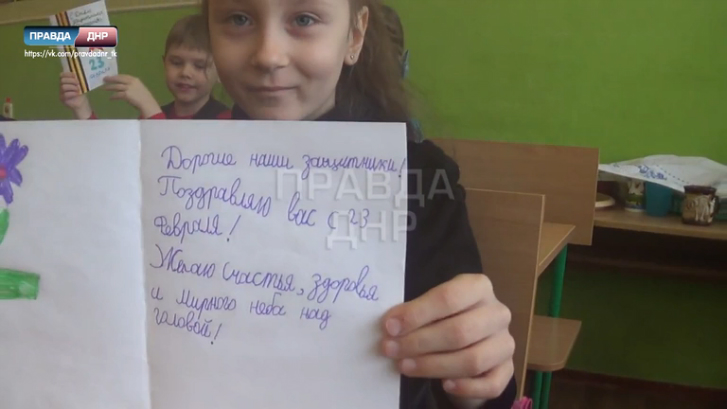 ПРАВДА ДНР
https://vk.com/pravdadnr_tk
23
Дорогие наши защитники!
Поздравляю вас с 23
Февраля!
Желаю счастья, здоровья
и мирного неба над
головой!
ПРАВДА
ДНР